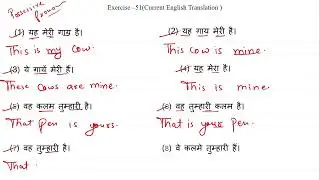 Possessive
pronoun
Exercise –51(Current English Translation )
(1) यह मेरी गाय है।
(2) यह गाय मेरी है।
This is my cow.
This cow is mine.
(3) ये गायें मेरी हैं।
(4) यह मेरा है।
These cows are mine.
This is mine.
(5) वह कलम तुम्हारी है।
(6) वह तुम्हारी कलम है।
That pen is yours.
That is your pen.
(7) वह तुम्हारी है।
(8) वे कलमें तुम्हारी हैं।
That